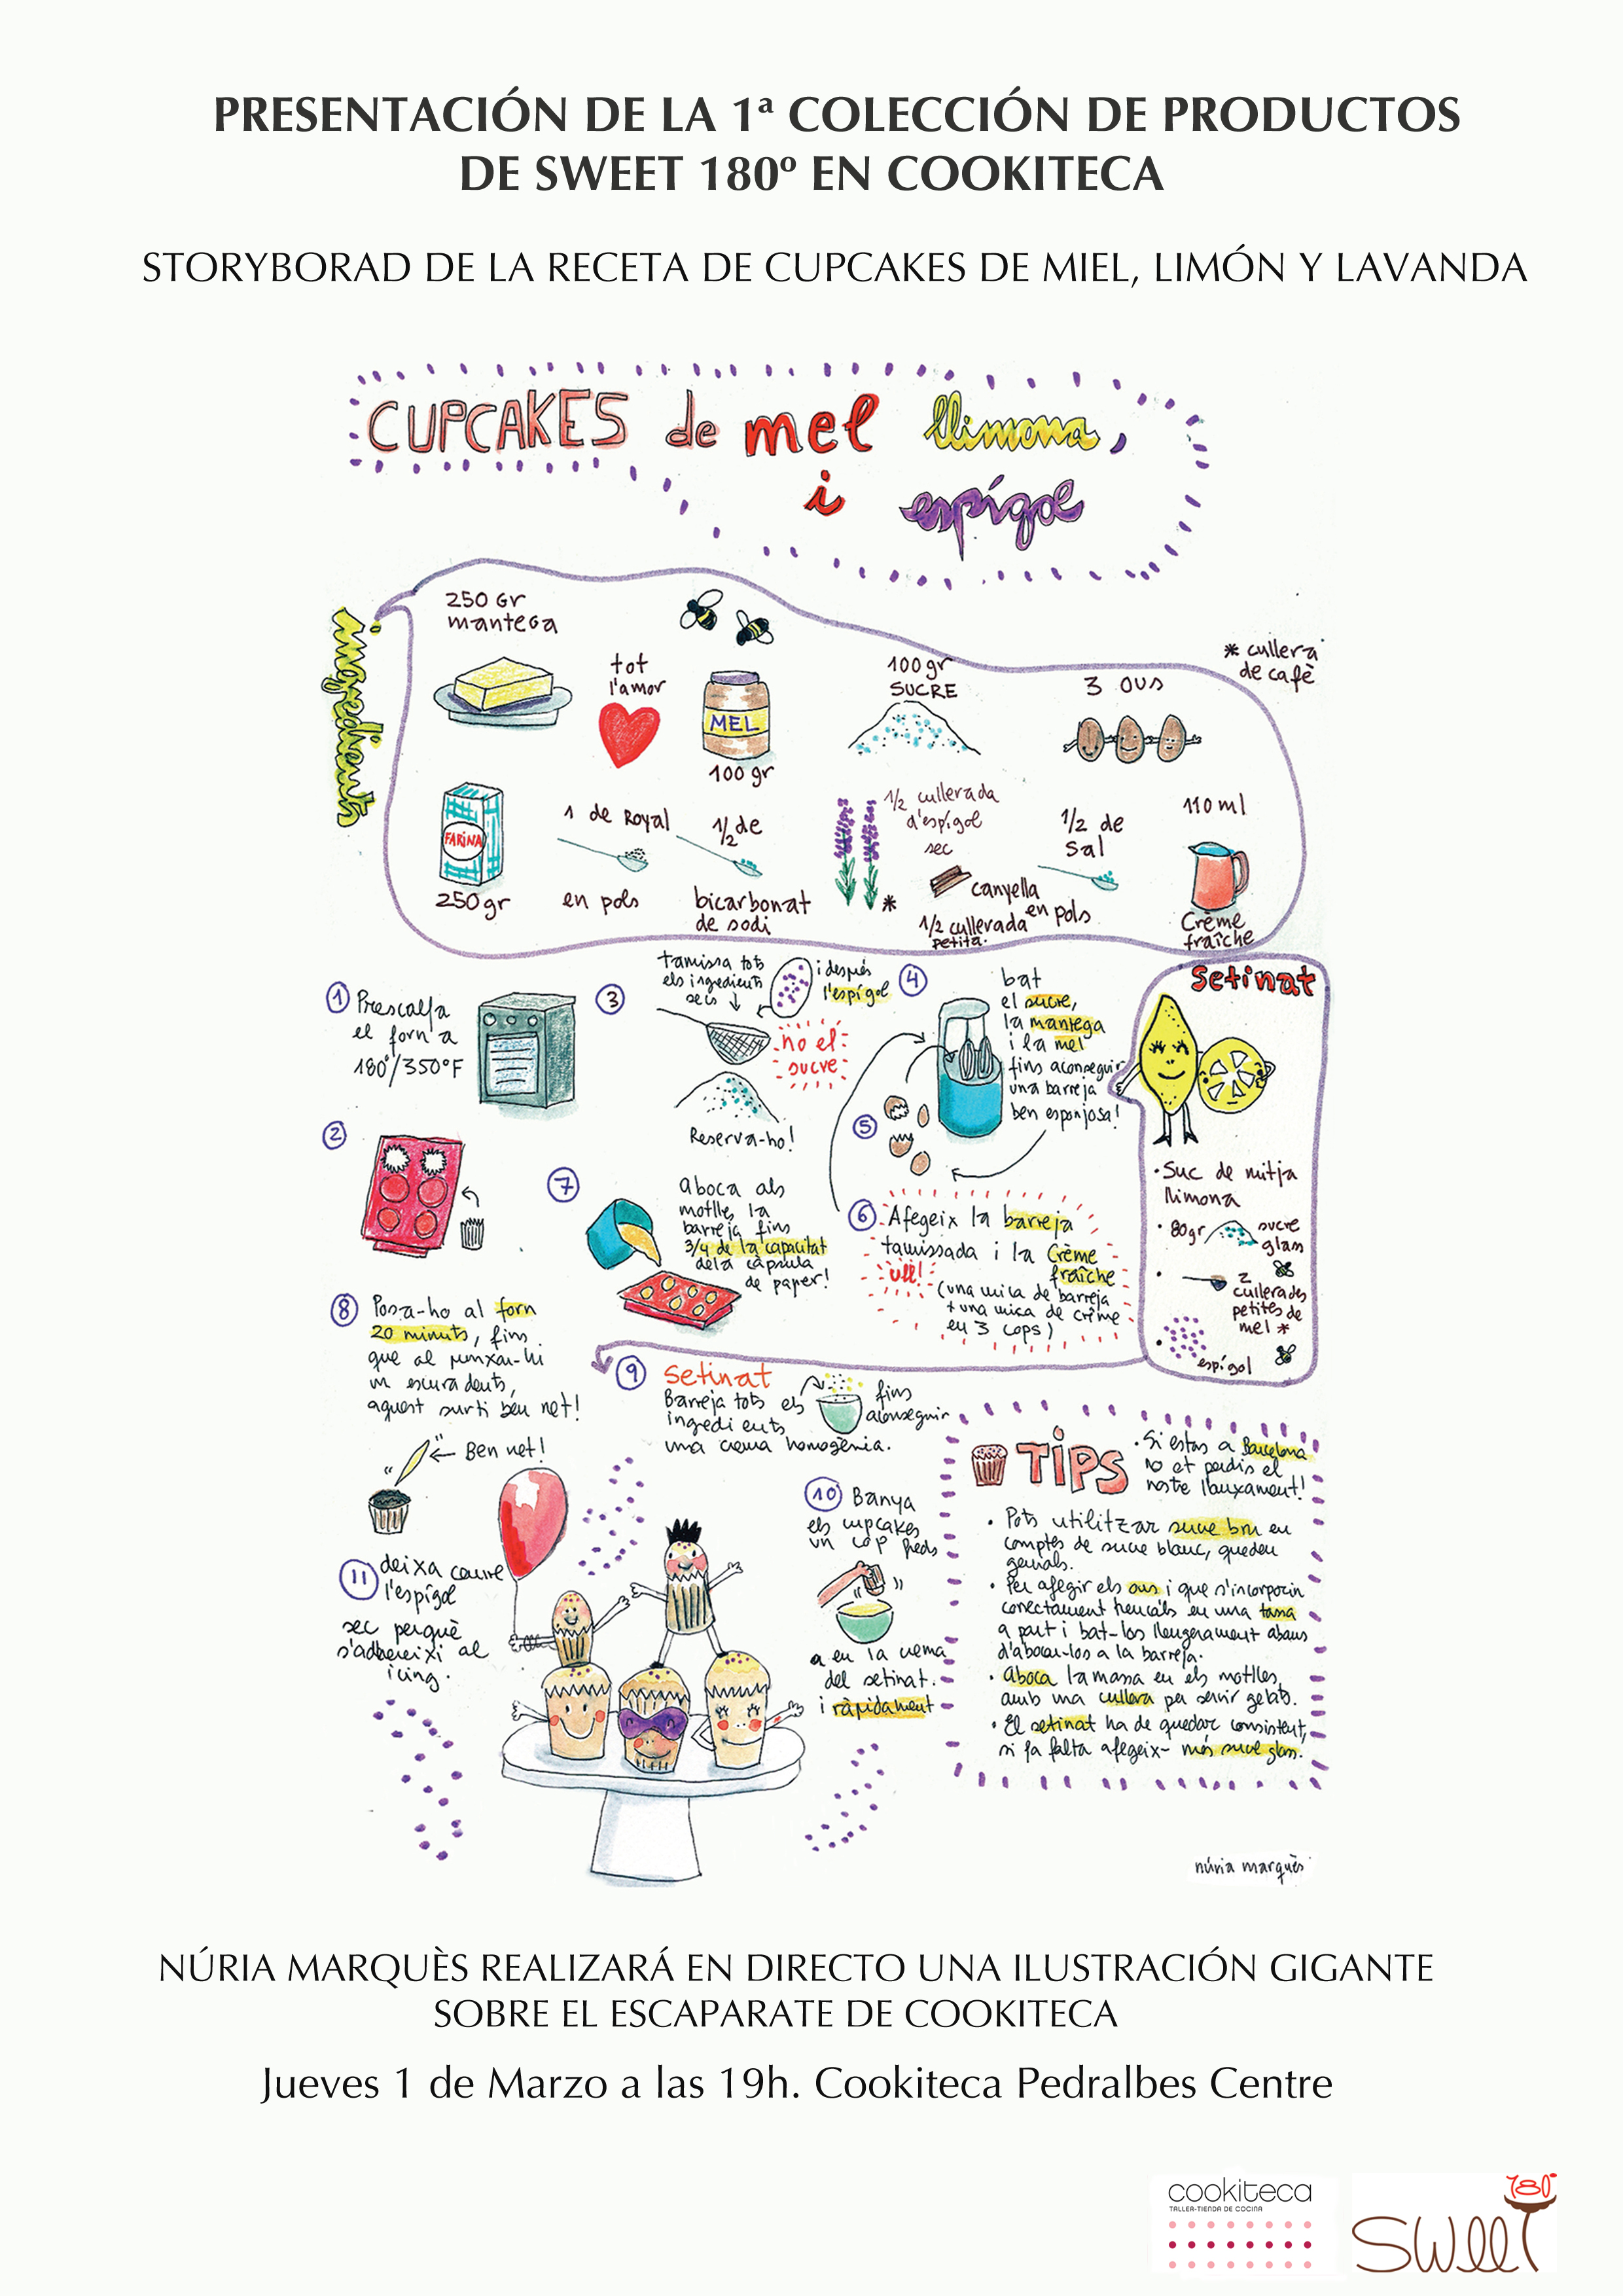 PRESENTACIÓN DE LA 1ª COLECCIÓN DE PRODUCTOS
DE SWEET 180º EN COOKITECA
STORYBORAD DE LA RECETA DE CUPCAKES DE MIEL, LIMÓN Y LAVANDA
CUPCAKES de mel llimona,
i espígol
ingredients
250 Gr
mantega
tot
l'amor
MEL
100 gr
100 gr
SUCRE
3 ous
* cullera
de cafè
FARINA
250 gr
1 de Royal
en pols
1/2 de
bicarbonat
de sodi
1/2 cullerada
d'espígol
sec
*
canyella
en pols
1/2 cullerada
petita.
1/2 de
sal
110 ml
Crème
fraîche
1 Prescalfa
el forn a
180º/350ºF
2
3 tamissa tots
els ingredients
secs
i després
l'espígol
no el
sucre
Reserva-ho!
4 bat
el sucre,
la mantega
i la mel
fins aconseguir
una barreja
ben esponjosa!
5
6 Afegeix la barreja
tamissada i la Crème
fraîche
ull!
(una mica de barreja
+ una mica de crème
en 3 cops)
7 aboca als
motlles la
barreja fins
3/4 de la capacitat
de la càpsula
de paper!
8 Posa-ho al forn
20 minuts, fins
que al punxar-hi
un escuradents,
aquest surti ben net!
Ben net!
setinat
• Suc de mitja
llimona
• 80gr sucre
glass
• 2
cullerades
petites de
mel *
• espígol
9 Setinat
Barreja tots els
ingredients
fins
aconseguir
una crema homogènia.
10 Banya
els cupcakes
un cop freds
a en la crema
del setinat.
i ràpidament
11 deixa caure
l'espígol
sec perquè
s'adhereixi al
icing.
TIPS
• Si estas a Barcelona
no et perdis el
nostre llançament!
• Pots utilitzar sucre bru en
comptes de sucre blanc, queden
genials.
• Per afegir els ous i que s'incorporin
correctament trencals en una tassa
a part i bat-los lleugerament abans
d'abocar-los a la barreja.
• Aboca la massa en els motlles,
amb una cullera per servir gelats.
• El setinat ha de quedar consistent,
si fa falta afegeix- més sucre glass.
núria marquès
NÚRIA MARQUÈS REALIZARÁ EN DIRECTO UNA ILUSTRACIÓN GIGANTE
SOBRE EL ESCAPARATE DE COOKITECA
Jueves 1 de Marzo a las 19h. Cookiteca Pedralbes Centre
cookiteca
TALLER-TIENDA DE COCINA
180º
SWEET